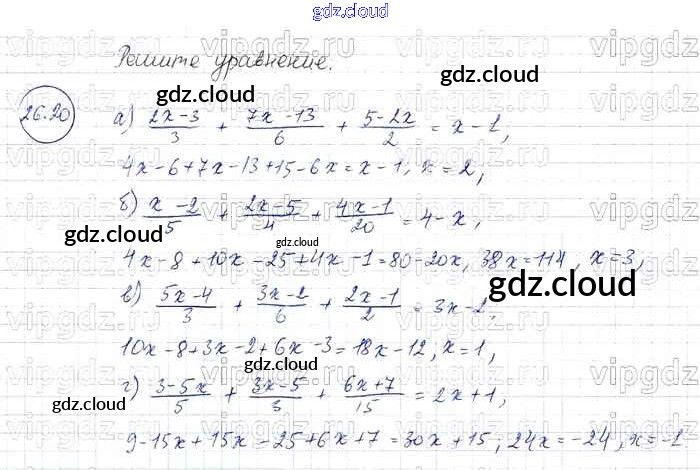 gdz.cloud
Решите уравнение.
gdz.cloud
26.20
а) (2x-3)/3 + (7x-13)/6 + (5-2x)/2 = x-1,
4x-6+7x-13+15-6x=x-1, x=2,
б) (x-2)/5 + (2x-5)/4 + (4x-1)/20 = 4-x,
gdz.cloud
gdz.cloud
4x-8+10x-25+4x-1=80-20x, 38x=114, x=3,
gdz.cloud
в) (5x-4)/3 + (3x-2)/6 + (2x-1)/2 = 3x-2,
gdz.cloud
10x-8+3x-2+6x-3=18x-12, x=1,
г) (3-5x)/5 + (3x-5)/3 + (6x+7)/15 = 2x+1,
gdz.cloud
gdz.cloud
9-15x+15x-25+6x+7=30x+15, 24x=-24, x=-1